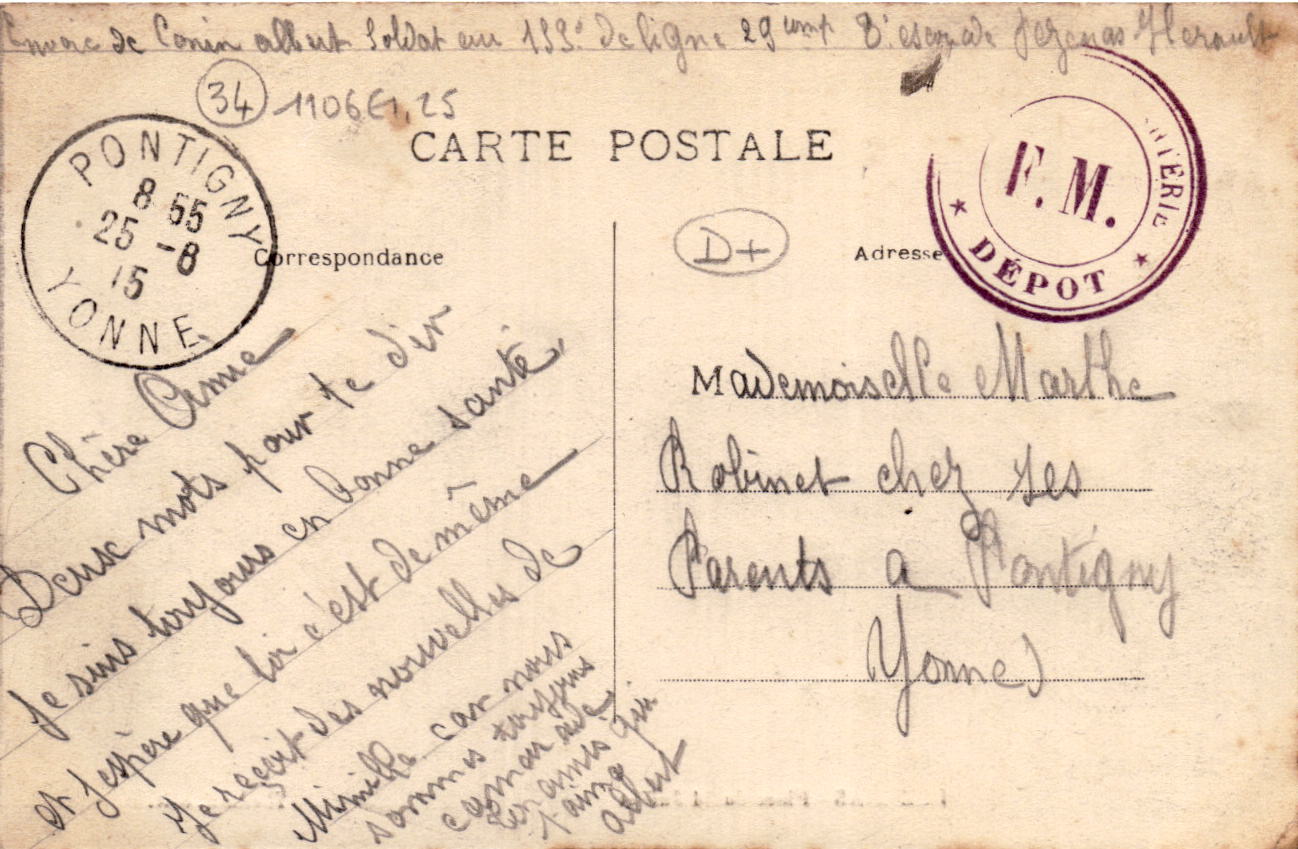 Envoie de Conin albert Soldat au 153e de ligne 29 comp 8e escouade Pezenas Herault
34 1106E1.25
CARTE POSTALE
PONTIGNY
8 55
25 -8
15
YONNE
F. M.
DÉPOT
Correspondance
D+
Adresse
Chère Amie
Deux mots pour te dir
Je suis toujours en bonne santé,
et J'espère que toi c'est de même
Je reçoit des nouvelles de
Mimille car nous
sommes toujours
camarade
Ton amis qui
t'aime
albert
Mademoiselle Marthe
Robinet chez ses
Parents a Pontigny
Yonne